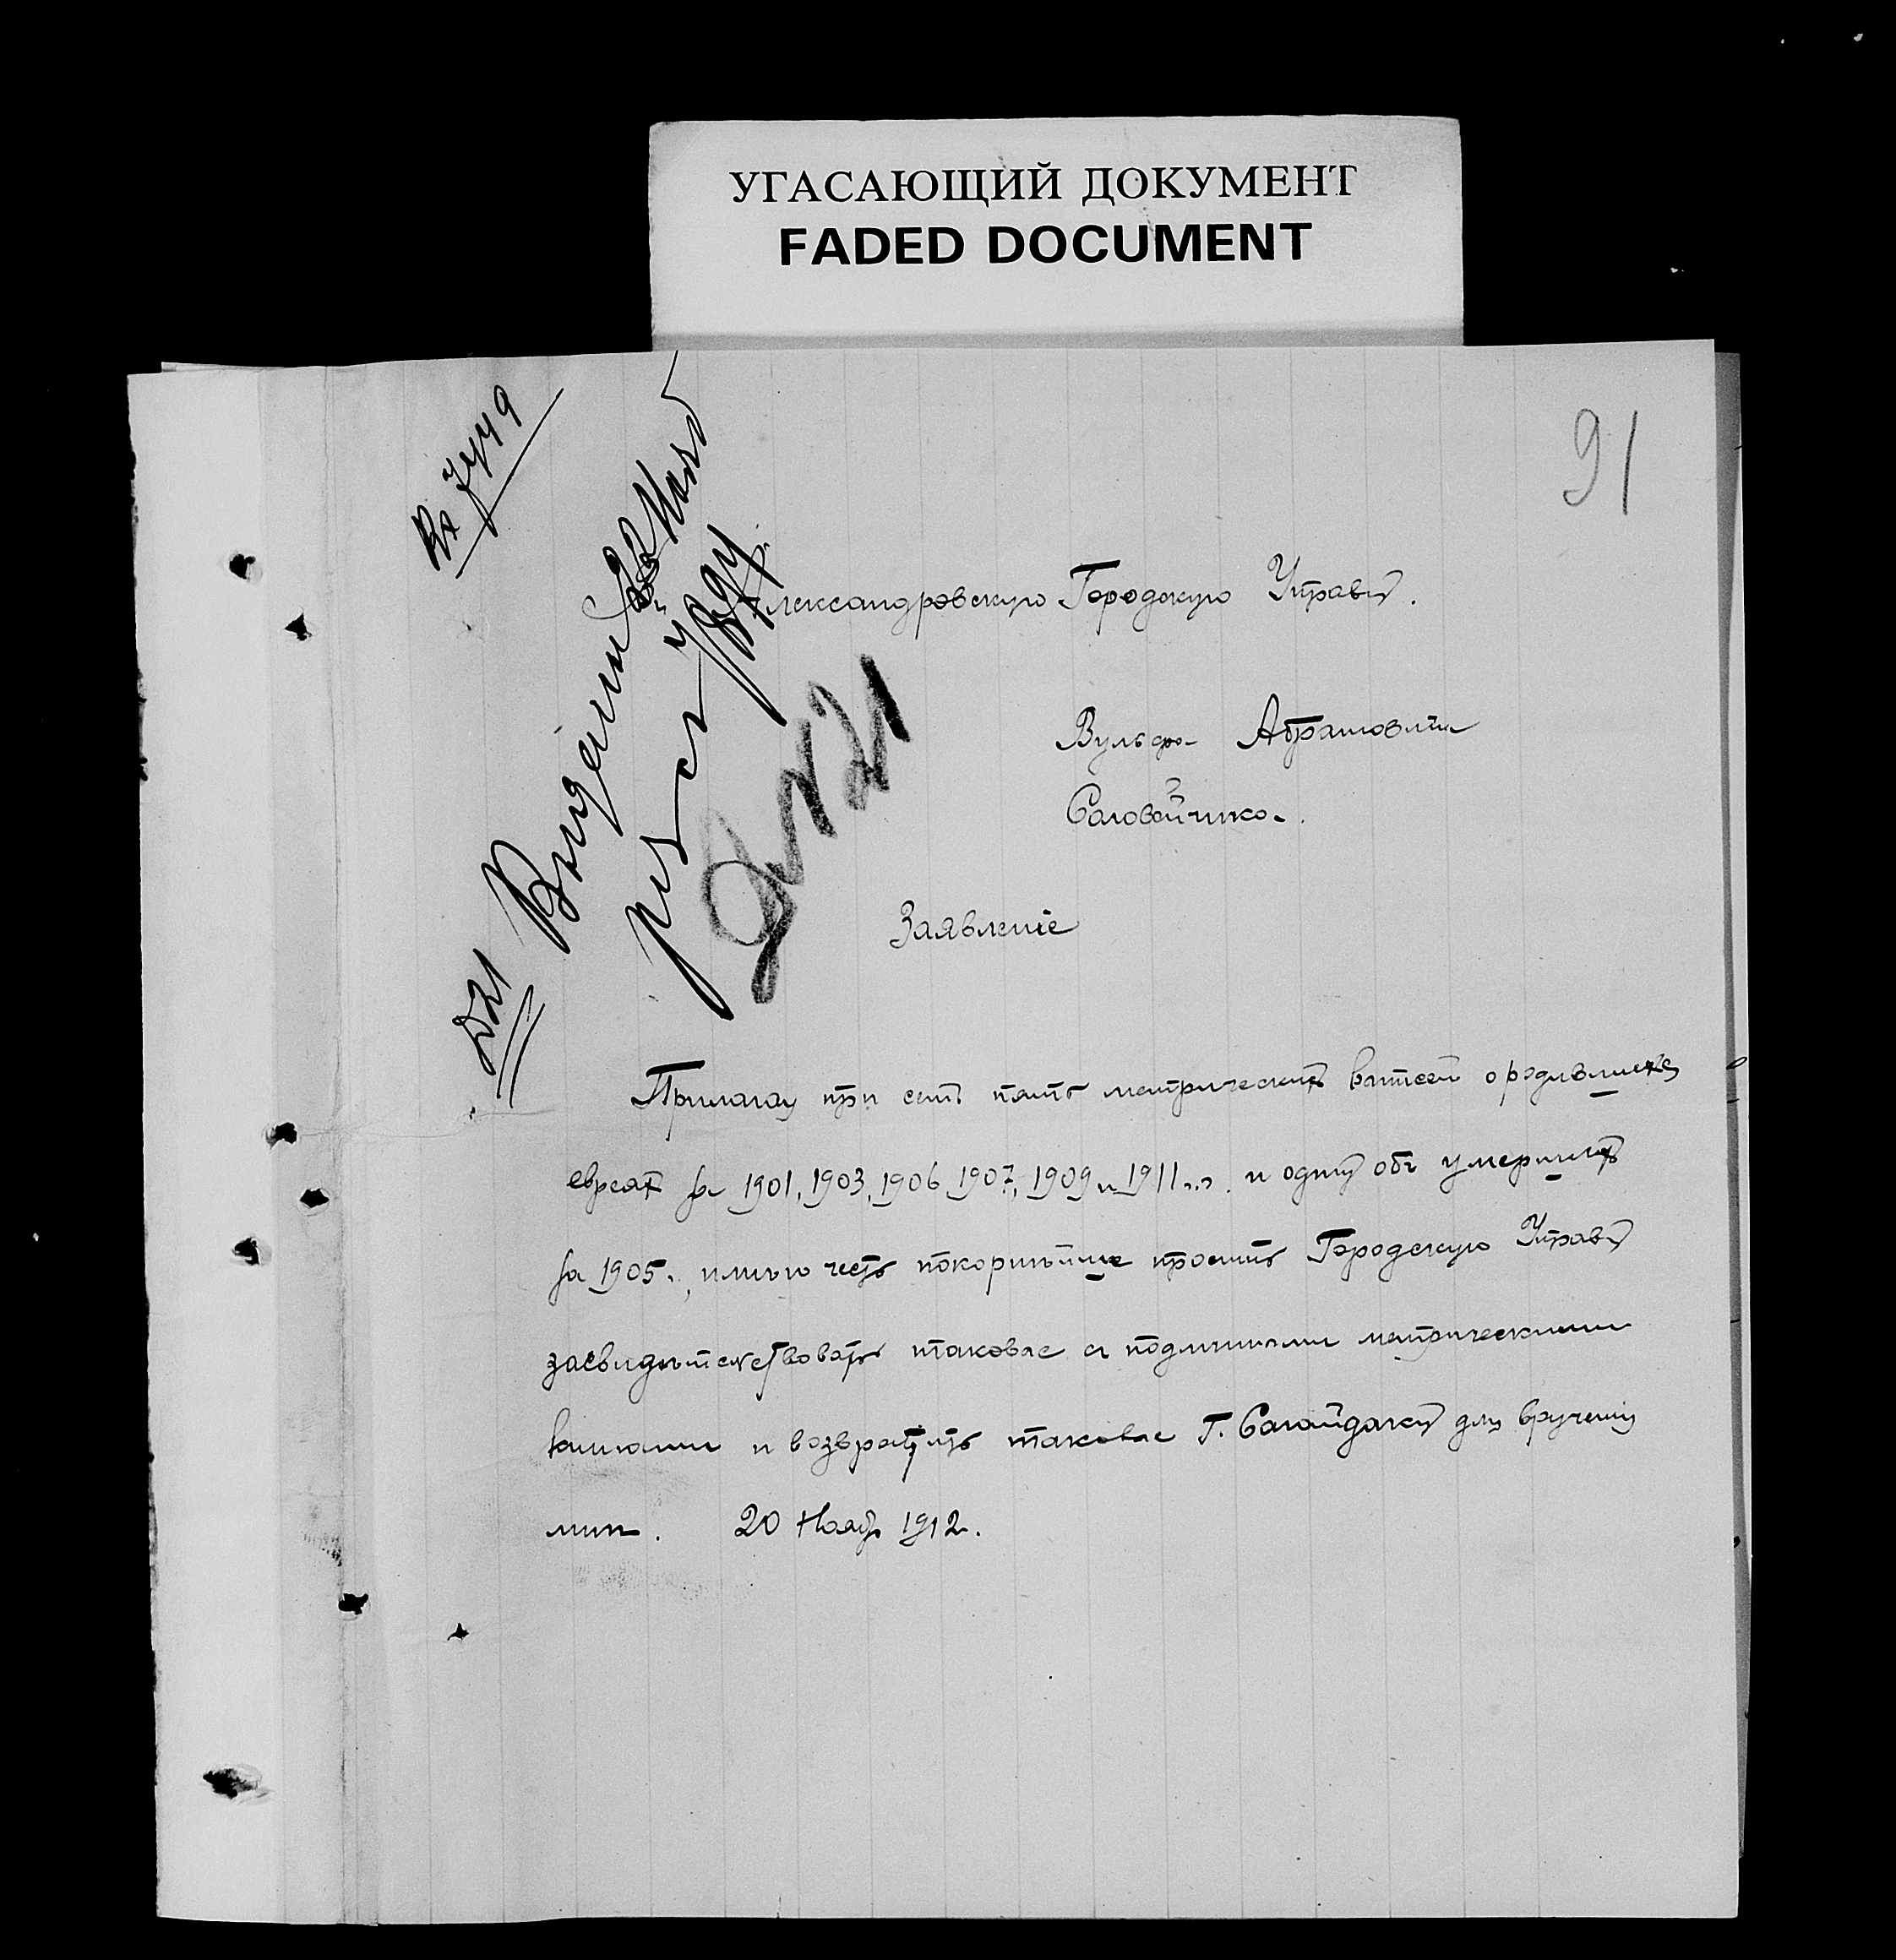 УГАСАЮЩИЙ ДОКУМЕНТ
FADED DOCUMENT
91
Вх 7449
Д 21
Александровскую Городскую Управу.
Вульфа Абрамовича
Саловейчика.
Заявленіе
Прилагаю при семъ пять метрическихъ выписей о родившихся
евреях за 1901, 1903, 1906, 1907, 1909 и 1911 г.г. и одну объ умершихъ
за 1905 г., имѣю честь покорнѣйше просить Городскую Управу
засвидѣтельствовать таковые с подлинными метрическими
книгами и возвратить таковые Г. Сагайдаку для врученія
мнѣ. 20 Ноября 1912 г.